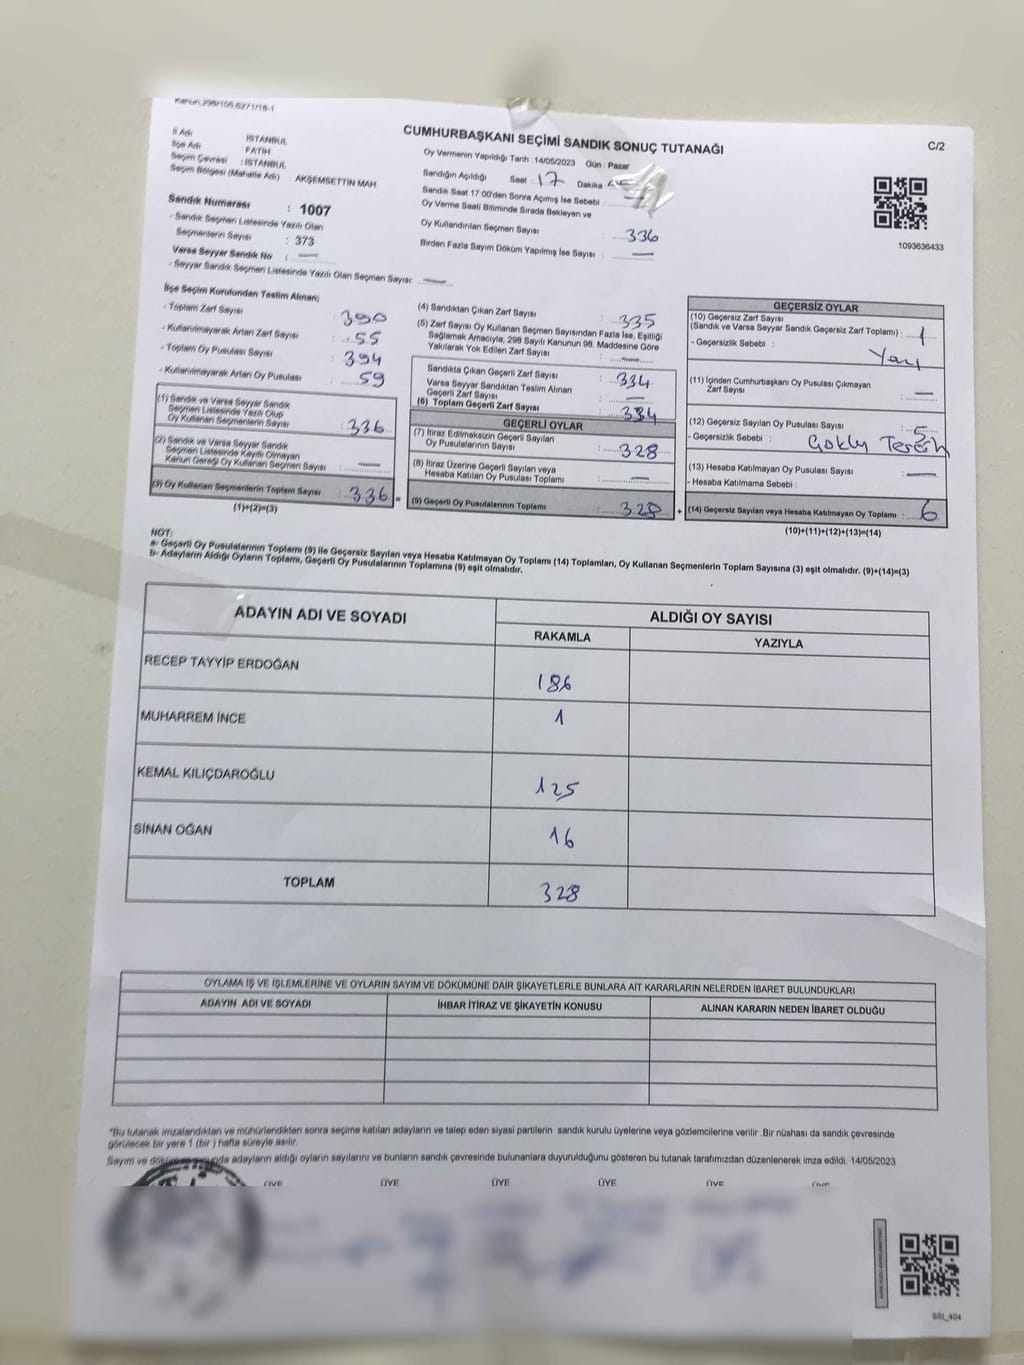 Kanun_298/105,6271/18-1
CUMHURBAŞKANI SEÇİMİ SANDIK SONUÇ TUTANAĞI
C/2
İl Adı : İSTANBUL
İlçe Adı : FATİH
Seçim Çevresi : İSTANBUL
Seçim Bölgesi (Mahalle Adı) : AKŞEMSETTİN MAH
Sandık Numarası : 1007
- Sandık Seçmen Listesinde Yazılı Olan
Seçmenlerin Sayısı : 373
Varsa Seyyar Sandık No : —
- Seyyar Sandık Seçmen Listesinde Yazılı Olan Seçmen Sayısı: —
Oy Vermenin Yapıldığı Tarih : 14/05/2023 Gün : Pazar
Sandığın Açıldığı Saat 17 Dakika
Sandık Saat 17:00'den Sonra Açımış İse Sebebi :
Oy Verme Saati Bitiminde Sırada Bekleyen ve
Oy Kullandırılan Seçmen Sayısı : 336
Birden Fazla Sayım Döküm Yapılmış İse Sayısı : —
1093636433
İlçe Seçim Kurulundan Teslim Alınan;
- Toplam Zarf Sayısı : 390
- Kullanılmayarak Artan Zarf Sayısı : 55
- Toplam Oy Pusulası Sayısı : 394
- Kullanılmayarak Artan Oy Pusulası : 59
(1) Sandık ve Varsa Seyyar Sandık
Seçmen Listesinde Yazılı Olup
Oy Kullanan Seçmenlerin Sayısı : 336
(2) Sandık ve Varsa Seyyar Sandık
Seçmen Listesinde Kayıtlı Olmayan
Kanun Gereği Oy Kullanan Seçmen Sayısı : —
(3) Oy Kullanan Seçmenlerin Toplam Sayısı : 336 =
(1)+(2)=(3)
(4) Sandıktan Çıkan Zarf Sayısı : 335
(5) Zarf Sayısı Oy Kullanan Seçmen Sayısından Fazla İse, Eşitliği
Sağlamak Amacıyla, 298 Sayılı Kanunun 98. Maddesine Göre
Yakılarak Yok Edilen Zarf Sayısı : —
Sandıkta Çıkan Geçerli Zarf Sayısı : 334
Varsa Seyyar Sandıktan Teslim Alınan
Geçerli Zarf Sayısı : —
(6) Toplam Geçerli Zarf Sayısı : 334
GEÇERLİ OYLAR
(7) İtiraz Edilmeksizin Geçerli Sayılan
Oy Pusulalarının Sayısı : 328
(8) İtiraz Üzerine Geçerli Sayılan veya
Hesaba Katılan Oy Pusulası Toplamı : —
(9) Geçerli Oy Pusulalarının Toplamı : 328 +
GEÇERSİZ OYLAR
(10) Geçersiz Zarf Sayısı
(Sandık ve Varsa Seyyar Sandık Geçersiz Zarf Toplamı) : 1
- Geçersizlik Sebebi : Yazı
(11) İçinden Cumhurbaşkanı Oy Pusulası Çıkmayan
Zarf Sayısı : —
(12) Geçersiz Sayılan Oy Pusulası Sayısı : 5
- Geçersizlik Sebebi : Çoklu Tercih
(13) Hesaba Katılmayan Oy Pusulası Sayısı : —
- Hesaba Katılmama Sebebi :
(14) Geçersiz Sayılan veya Hesaba Katılmayan Oy Toplamı : 6
(10)+(11)+(12)+(13)=(14)
NOT:
a- Geçerli Oy Pusulalarının Toplamı (9) ile Geçersiz Sayılan veya Hesaba Katılmayan Oy Toplamı (14) Toplamları, Oy Kullanan Seçmenlerin Toplam Sayısına (3) eşit olmalıdır. (9)+(14)=(3)
b- Adayların Aldığı Oyların Toplamı, Geçerli Oy Pusulalarının Toplamına (9) eşit olmalıdır.
ADAYIN ADI VE SOYADI
ALDIĞI OY SAYISI
RAKAMLA YAZIYLA
RECEP TAYYİP ERDOĞAN 186
MUHARREM İNCE 1
KEMAL KILIÇDAROĞLU 125
SİNAN OĞAN 16
TOPLAM 328
OYLAMA İŞ VE İŞLEMLERİNE VE OYLARIN SAYIM VE DÖKÜMÜNE DAİR ŞİKAYETLERLE BUNLARA AİT KARARLARIN NELERDEN İBARET BULUNDUKLARI
ADAYIN ADI VE SOYADI İHBAR İTİRAZ VE ŞİKAYETİN KONUSU ALINAN KARARIN NEDEN İBARET OLDUĞU
*Bu tutanak imzalandıktan ve mühürlendikten sonra seçime katılan adayların ve talep eden siyasi partilerin sandık kurulu üyelerine veya gözlemcilerine verilir .Bir nüshası da sandık çevresinde
görülecek bir yere 1 (bir ) hafta süreyle asılır.
Sayım ve adayların aldığı oyların sayılarını ve bunların sandık çevresinde bulunanlara duyurulduğunu gösteren bu tutanak tarafımızdan düzenlenerek imza edildi. 14/05/2023
ÜYE ÜYE ÜYE ÜYE ÜYE ÜYE